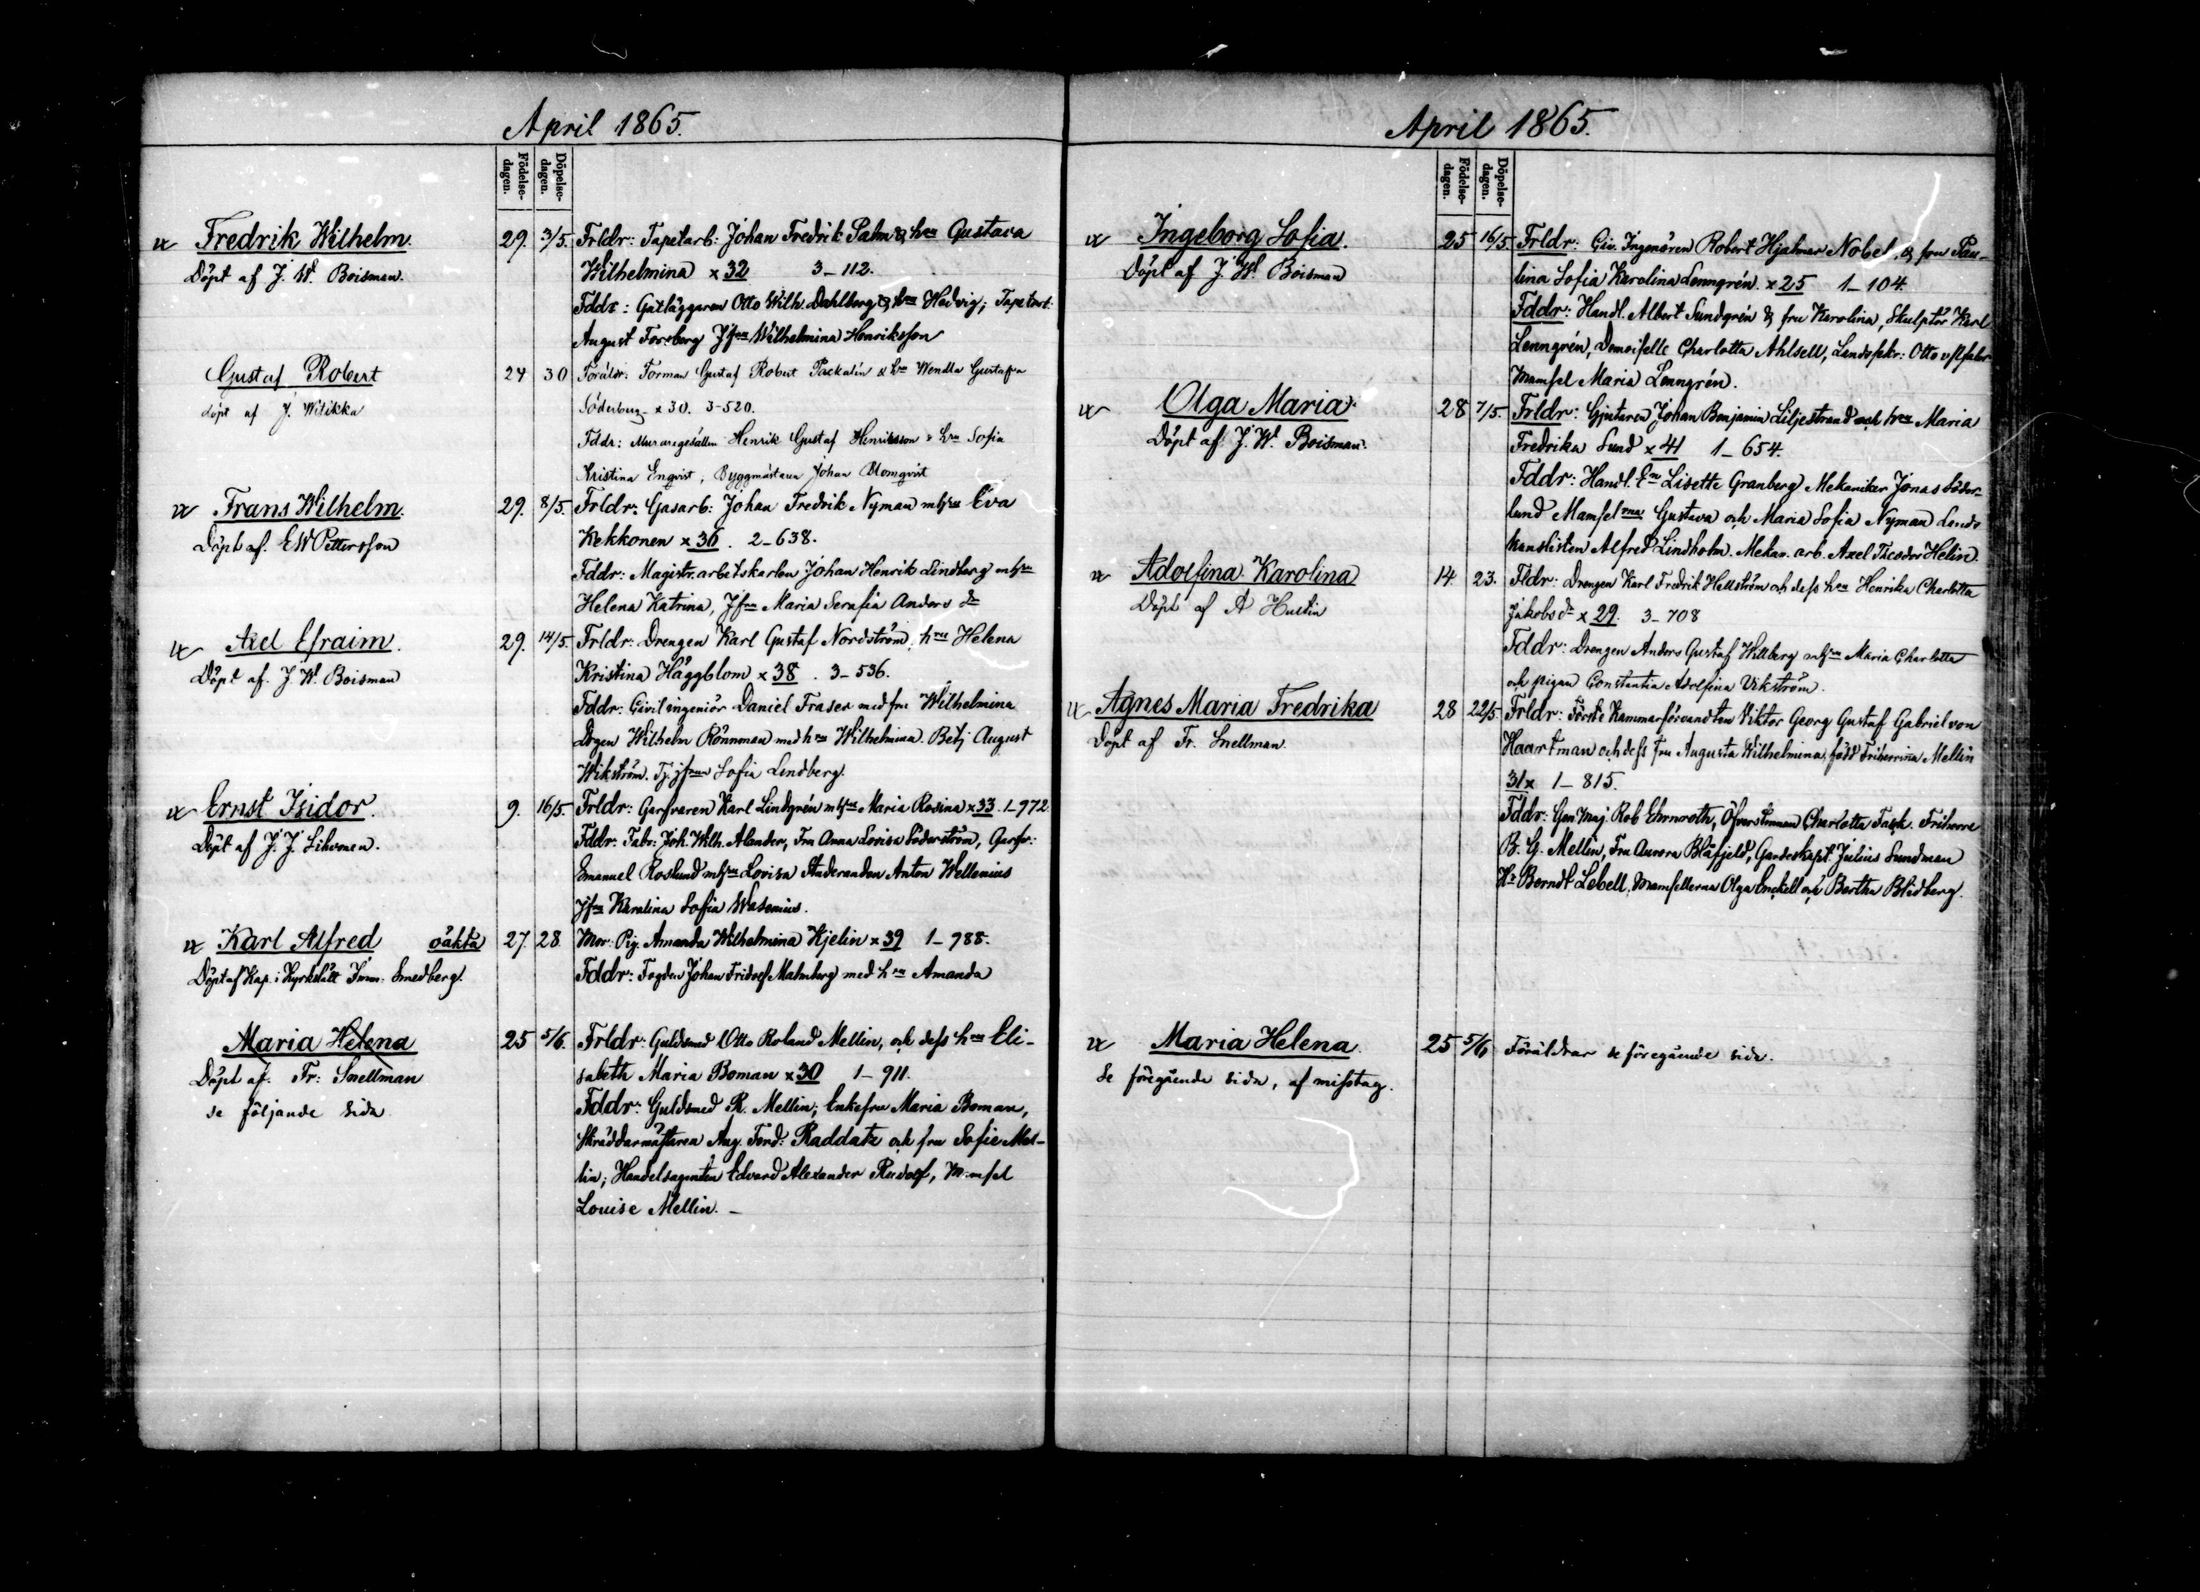 April 1865.
Födelse-
dagen.
Döpelse-
dagen.
Fredrik Wilhelm.
Döpt af J. W. Boisman.
29. 3/5.
Frldr: Tapetarb: Johan Fredrik Palm & hru Gustava
Wilhelmina x 32 3–112.
Fddr: Gatläggaren Otto Wilh. Dahlberg & hru Hedvig; Tapetarb:
August Forsberg Jfru Wilhelmina Henriksson
Gustaf Robert
döpt af J. Witikka
24 30
Föräldr: Forman Gustaf Robert Packalén & hru Wendla Gustafva
Söderberg x 30. 3-520.
Fddr: Muraregesällen Henrik Gustaf Henriksson & hru Sofia
Kristina Enqvist; Byggmästaren Johan Blomqvist
Frans Wilhelm.
Döpt af. E W Pettersson
29. 8/5.
Frldr: Gasarb: Johan Fredrik Nyman m hru Eva
Kekkonen x 36. 2–638.
Fddr: Magistr. arbetskarlen Johan Henrik Lindberg m hru
Helena Katrina, Jfru Maria Serafia Anders dr
Axel Efraim.
Döpt af. J. W. Boisman
29. 14/5.
Frldr: Drengen Karl Gustaf Nordström, hru Helena
Kristina Häggblom x 38. 3–536.
Fddr: Civil ingeniör Daniel Fraser med fru Wilhelmina
Drgen Wilhelm Rönneman med hru Wilhelmina. Betj August
Wikström. Tj. jfrun Sofia Lindberg.
Ernst Isidor.
Döpt af J. J. Sihvonen.
9. 16/5.
Frldr: Garfvaren Karl Lindgrén m hru Maria Rosina x 33. 1–972
Fddr: Fabr: Joh. Wilh. Alander, Fru Anna Lovisa Söderström, Garfv:
Emanuel Roslund m hru Lovisa Studeranden Anton Wellenius
Jfru Karolina Sofia Wasenius.
Karl Alfred oäkta
Döpt af Kap. i Kyrkslätt Imm: Smedberg.
27 28
Mor: Pig. Amanda Wilhelmina Hjelin x 39 1–788.
Fddr: Fogden Johan Fridolf Malmberg med hru Amanda
Maria Helena
Döpt af. Fr: Snellman
se följande sida
25 5/6.
Frldr: Guldsmed Otto Roland Mellin, och dess hru Eli-
sabeth Maria Boman x 30 1–911.
Fddr: Guldsmed R. Mellin; Enkefru Maria Boman,
Skräddarmästaren Aug. Ferd: Raddatz och fru Sofie Mel-
lin; Handelsagenten Edvard Alexander Rudolf, Mamsel
Louise Mellin. –
April 1865.
Födelse-
dagen.
Döpelse-
dagen.
Ingeborg Sofia.
Döpt af J. W. Boisman
25 16/5
Frldr: Civ. Ingenören Robert Hjalmar Nobel, & fru Pau-
lina Sofia Karolina Lenngrén. x 25 1–104.
Fddr: Handl. Albert Sundgrén & fru Karolina, Skulptör Karl
Lenngrén, Demoiselle Charlotta Ahlsell, Landssekr: Otto
Mamsel Maria Lenngrén.
Olga Maria.
Döpt af J. W. Boisman.
28 7/5.
Frldr: Gjutaren Johan Benjamin Liljestrand och hru Maria
Fredrika Sund x 41 1–654.
Fddr: Handl. En Lisette Granberg Mekaniker Jonas Söder-
lund Mamselrna Gustava och Maria Sofia Nyman Lands
kanslisten Alfred Lindholm. Mekan. arb. Axel Theodor Helin.
Adolfina Karolina
Döpt af A Hustin
14. 23.
Fldr: Drengen Karl Fredrik Hellström och dess hru Henrika Charlotta
Jakobs dr x 29. 3–708
Fddr: Drengen Anders Gustaf Hellberg m hru Maria Charlotta
och pigan Constantia Adolfina Vikström.
Agnes Maria Fredrika
Döpt af Fr. Snellman
28 22/5
Frldr: Förste Kammarförvandten Viktor Georg Gustaf Gabriel von
Haartman och dess Fru Augusta Wilhelmina, född Friherrina Mellin
31 x 1–815.
Fddr: Gen Maj. Rob Ehrnrooth, Öfverstinnan Charlotta Fack. Friherre
B. G. Mellin, Fru Aurora Blåfjeld, Gardeskapt. Julius Sundman
Hr Berndt Lebell, Mamsellerna Olga Enckell och Bertha Blidberg.
Maria Helena.
Se föregående sida, af misstag.
25 5/6
Föräldrar se föregående sida.